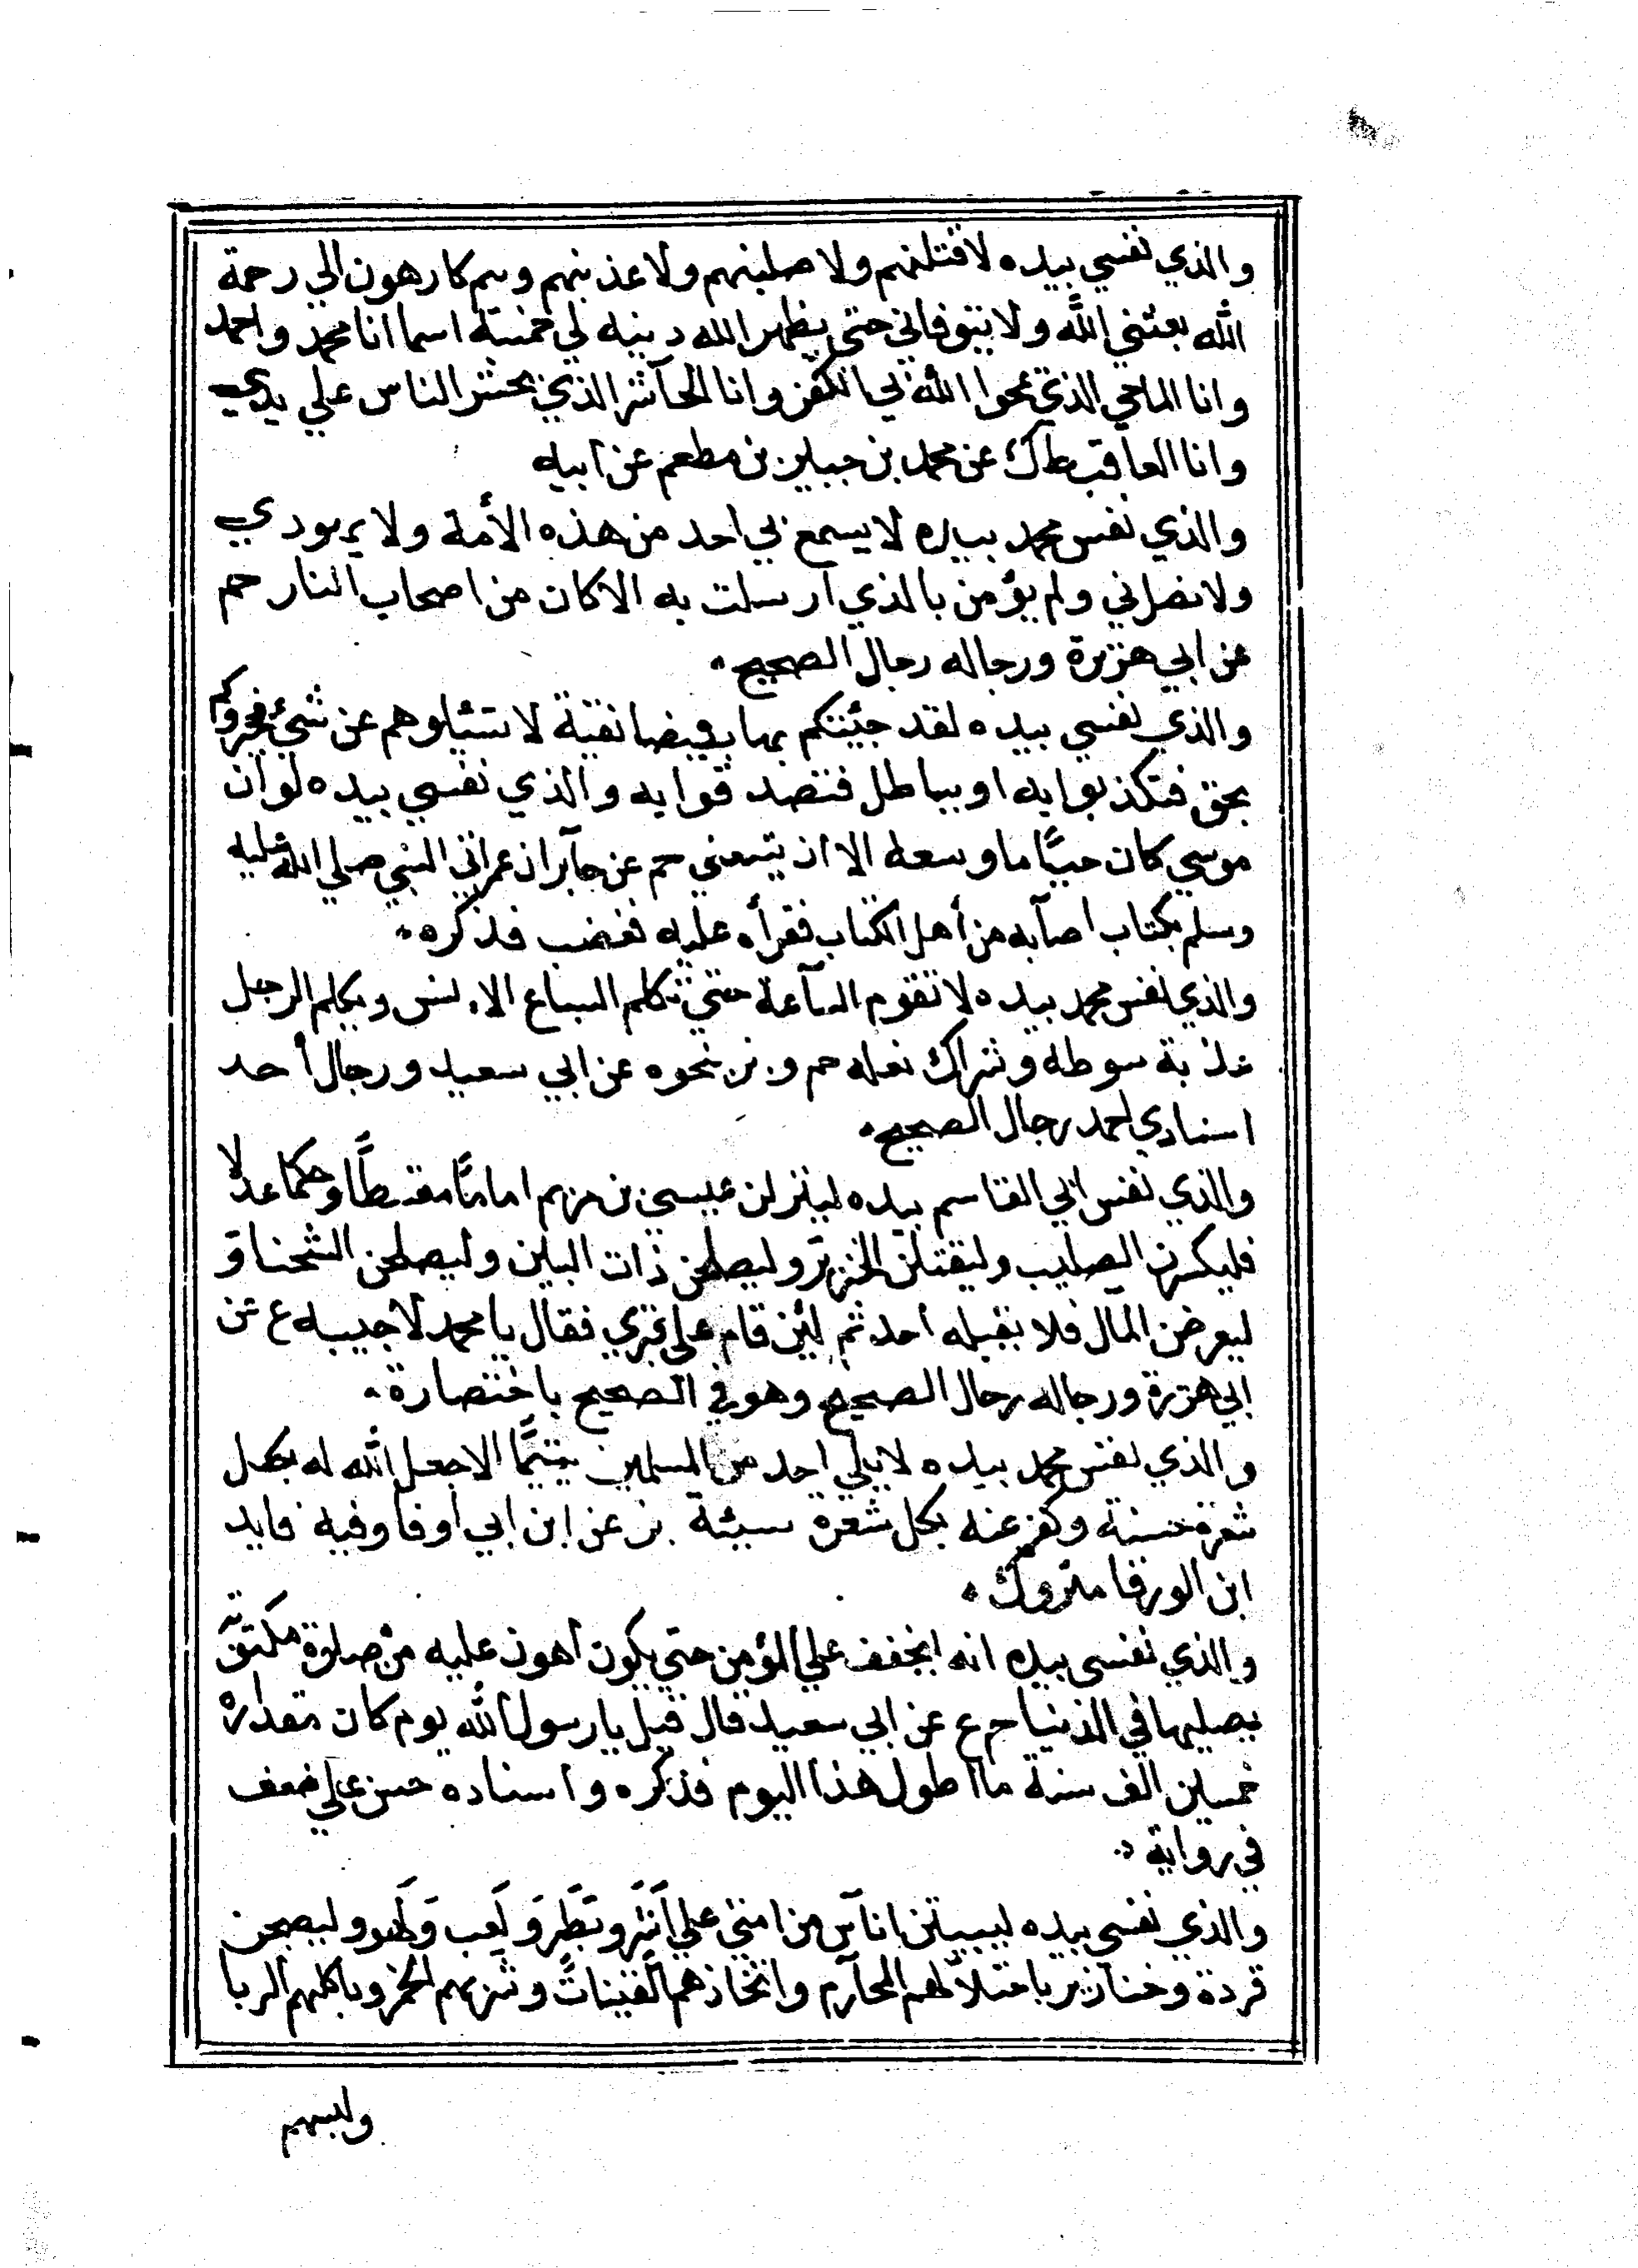 والذي نفسي بيده لاقتلنهم ولا صلبنهم ولاعذبنهم وهم كارهون الي رحمة
الله بعثني الله ولا يتوفاني حتي يظهر الله دينه لي خمسة اسما انا محمد واحمد
وانا الماحي الذي يمحوا الله بي الكفر وانا الحآشر الذي يحشر الناس علي يدي
وانا العاقب طك عن محمد بن جبير بن مطعم عن ابيه
والذي نفس محمد بيده لا يسمع بي احد من هذه الأمة ولا يهودي
ولا نصراني ولم يؤمن بالذي ارسلت به الا كان من اصحاب النار حم
عن ابي هريرة ورجاله رجال الصحيح
والذي نفسي بيده لقد جئتكم بها بيضا نقية لا تسئلوهم عن شئ فيخبروكم
بحق فتكذبوا به او بباطل فتصدقوا به والذي نفسي بيده لو ان
موسي كان حيًّا ما وسعه الا ان يتبعني حم عن جابر ان عمر اتي النبي صلي الله عليه
وسلم بكتاب اصابه من أهل الكتاب فقرأه عليه فغضب فذكره
والذي نفس محمد بيده لا تقوم الساعة حتي تكلم السباع الانس ويكلم الرجل
عذبة سوطه وشراك نعله حم وبز بنحوه عن ابي سعيد ورجال أحد
اسنادي احمد رجال الصحيح
والذي نفس ابي القاسم بيده لينزلن عيسي بن مريم امامًا مقسطًا وحكما عدلا
فليكسرن الصليب وليقتلن الخنزير وليصلحن ذات البين وليصلحن الشحنا و
ليعرضن المال فلا يقبله أحد ثم لئن قام علي قبري فقال يا محمد لاجيبه ع عن
ابي هريرة ورجاله رجال الصحيح وهو في الصحيح باختصارة
والذي نفس محمد بيده لا يلي احد من المسلمين يتيمًّا الا جعل الله له بكل
شعرة حسنة وكفر عنه بكل شعرة سيئة بز عن ابن ابي اوفا وفيه فايد
ابن الورقا متروك
والذي نفسى بيده انه ليخفف علي المؤمن حتي يكون أهون عليه من صلوة مكتوبة
يصليها في الدنيا حم ع عن ابي سعيد قال قيل يا رسول الله يوم كان مقداره
خمسين الف سنة ما اطول هذا اليوم فذكره واسناده حسن علي ضعف
في رواية
والذي نفسي بيده ليبيتن اناس من امتي علي أشر وبَطَر ولَعب ولَهو وليصبحن
قردة وخنازير باحتلالهم المحارم واتخاذهم القينات وشربهم الخمر وباكلهم الربا
ولبسهم